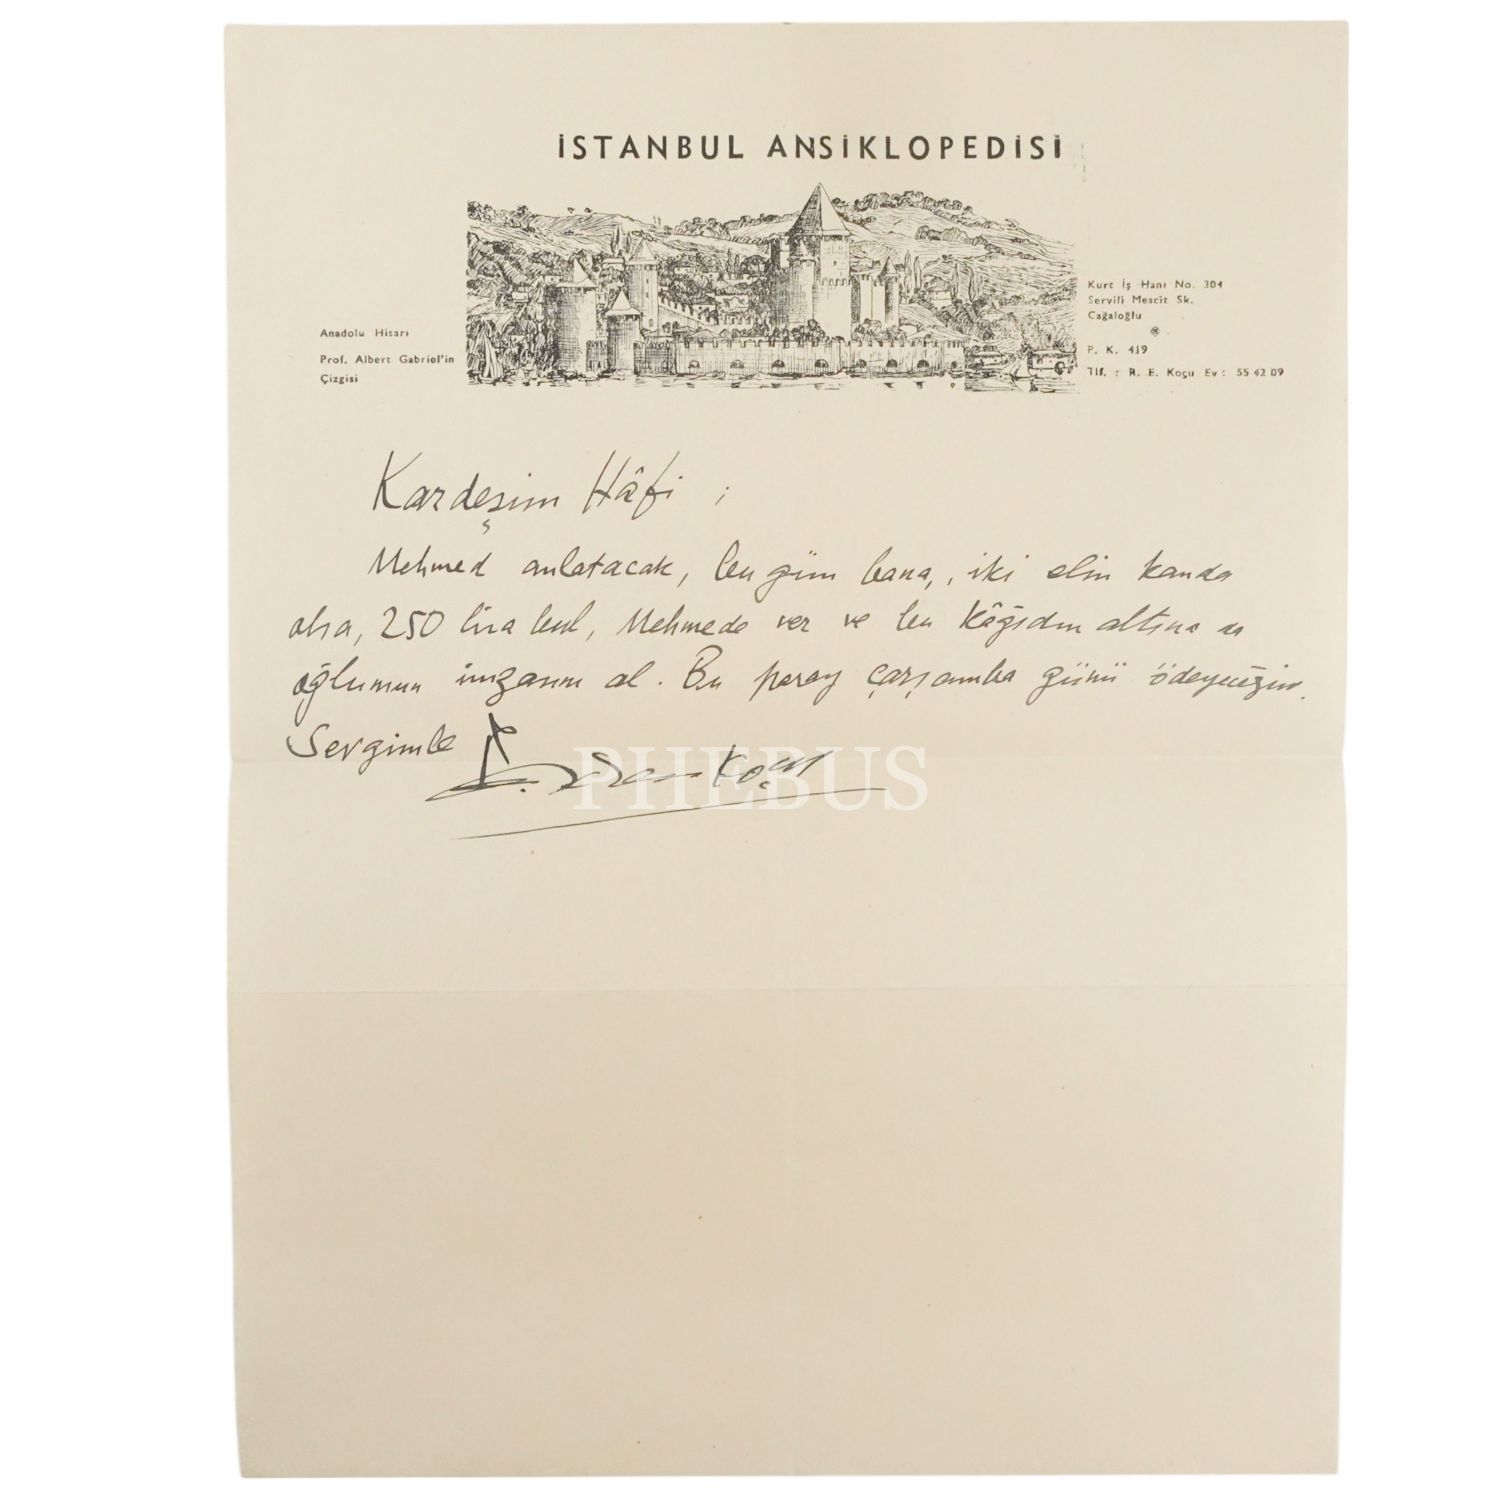 İSTANBUL ANSİKLOPEDİSİ
Anadolu Hisarı
Prof. Albert Gabriel'in
Çizgisi
Kurt İş Hanı No. 304
Servili Mescit Sk.
Cağaloğlu
P. K. 419
Tlf. : R. E. Koçu Ev : 55 42 09
Kardeşim Hâfi ;
Mehmed anlatacak, bu gün bana, iki elin kanda
olsa, 250 lira bul, Mehmede ver ve bu kâğıdın altına
oğlumun imzasını al. Bu parayı çarşamba günü ödeyeceğim.
Sevgimle
R. Ekrem Koçu
PHEBUS